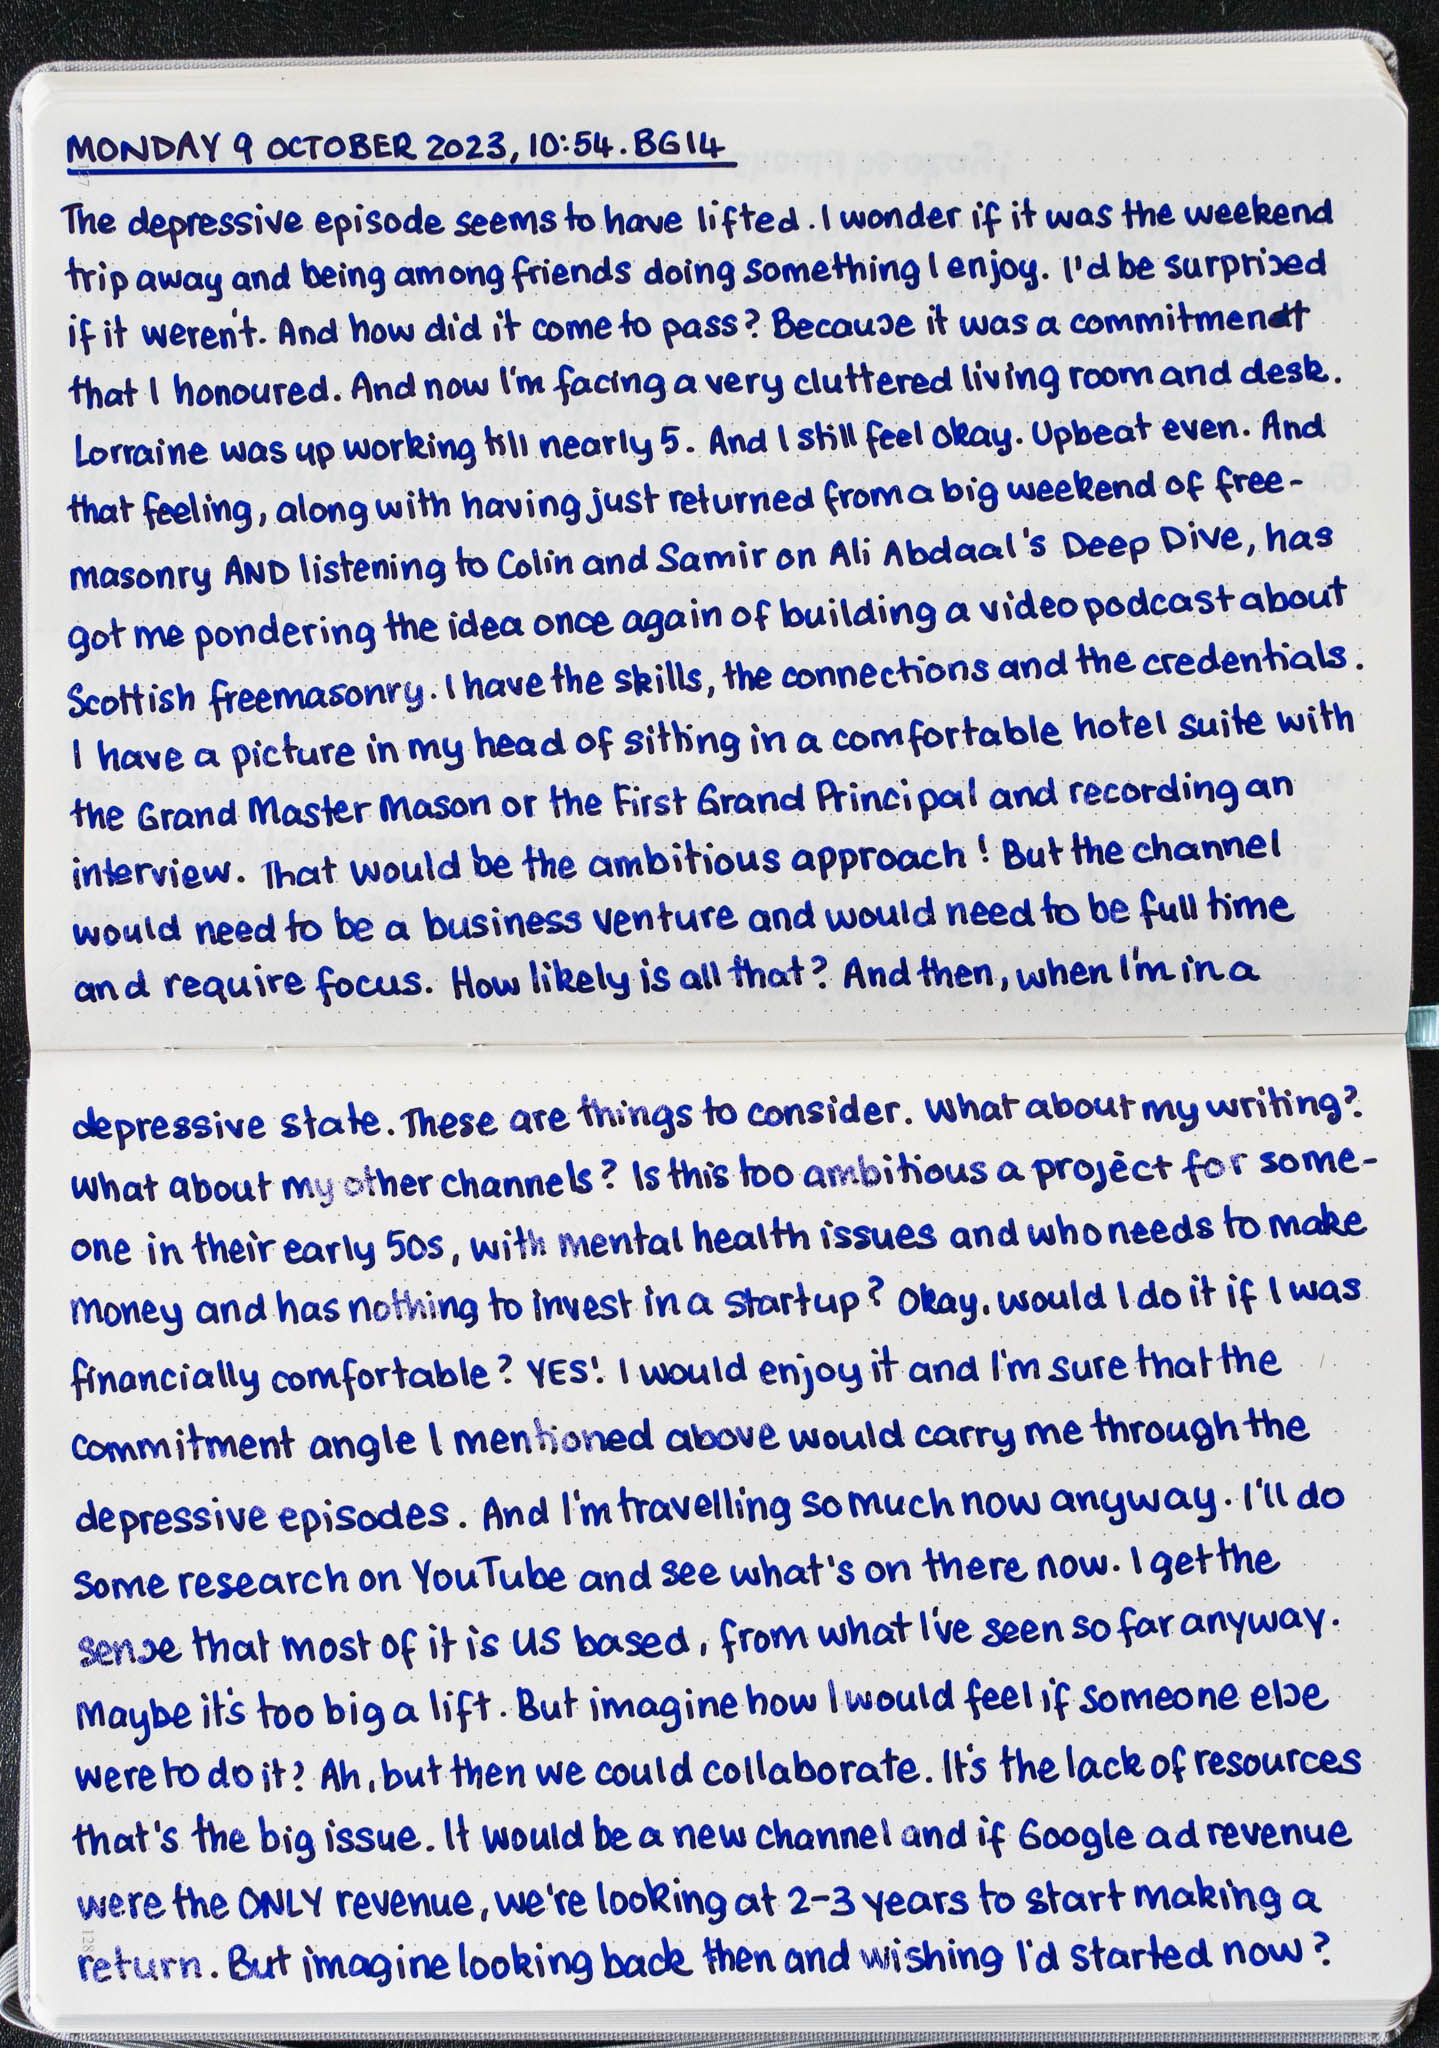 MONDAY 9 OCTOBER 2023, 10:54. BG14
The depressive episode seems to have lifted. I wonder if it was the weekend
trip away and being among friends doing something I enjoy. I'd be surprised
if it weren't. And how did it come to pass? Because it was a commitment
that I honoured. And now I'm facing a very cluttered living room and desk.
Lorraine was up working till nearly 5. And I still feel okay. Upbeat even. And
that feeling, along with having just returned from a big weekend of free-
masonry AND listening to Colin and Samir on Ali Abdaal's Deep Dive, has
got me pondering the idea once again of building a video podcast about
Scottish freemasonry. I have the skills, the connections and the credentials.
I have a picture in my head of sitting in a comfortable hotel suite with
the Grand Master Mason or the First Grand Principal and recording an
interview. That would be the ambitious approach! But the channel
would need to be a business venture and would need to be full time
and require focus. How likely is all that? And then, when I'm in a
depressive state. These are things to consider. What about my writing?
What about my other channels? Is this too ambitious a project for some-
one in their early 50s, with mental health issues and who needs to make
money and has nothing to invest in a startup? Okay. Would I do it if I was
financially comfortable? YES! I would enjoy it and I'm sure that the
commitment angle I mentioned above would carry me through the
depressive episodes. And I'm travelling so much now anyway. I'll do
some research on YouTube and see what's on there now. I get the
sense that most of it is US based, from what I've seen so far anyway.
Maybe it's too big a lift. But imagine how I would feel if someone else
were to do it? Ah, but then we could collaborate. It's the lack of resources
that's the big issue. It would be a new channel and if Google ad revenue
were the ONLY revenue, we're looking at 2-3 years to start making a
return. But imagine looking back then and wishing I'd started now?
127
128